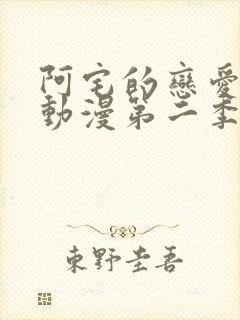 阿宅的戀愛
動漫第二季
東野圭吾